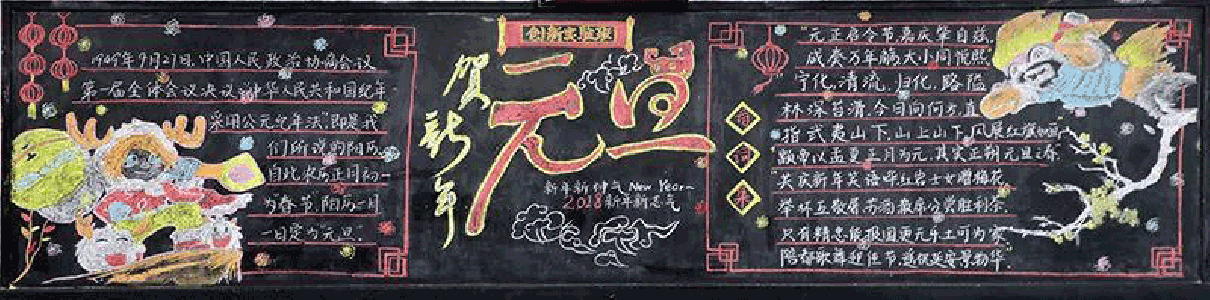 1949年9月27日,中国人民政治协商会议
第一届全体会议决议:"中华人民共和国纪年
采用公元纪年法",即是我
们所说的阳历,
自此农历正月初一
为春节,阳历一月
一日定为元旦"
创新实验班
贺新年
元旦
新年新神气 New Year
2018新年新志气
"元正启令节,嘉庆肇自兹,
咸奏万年觞,大小同悦熙"
宁化,清流,归化,路隘
林深苔滑,今日向何方,直
指武夷山下,山上山下,风展红旗如画
颛帝以孟夏正月为元,其实正朔元旦之春
共庆新年笑语哗,红岩士女赠梅花
举杯互敬屠苏酒,散席分尝胜利茶
只有精忠能报国,更无乐土可为家
陪都歌舞迎佳节,遥祝延安景物华"